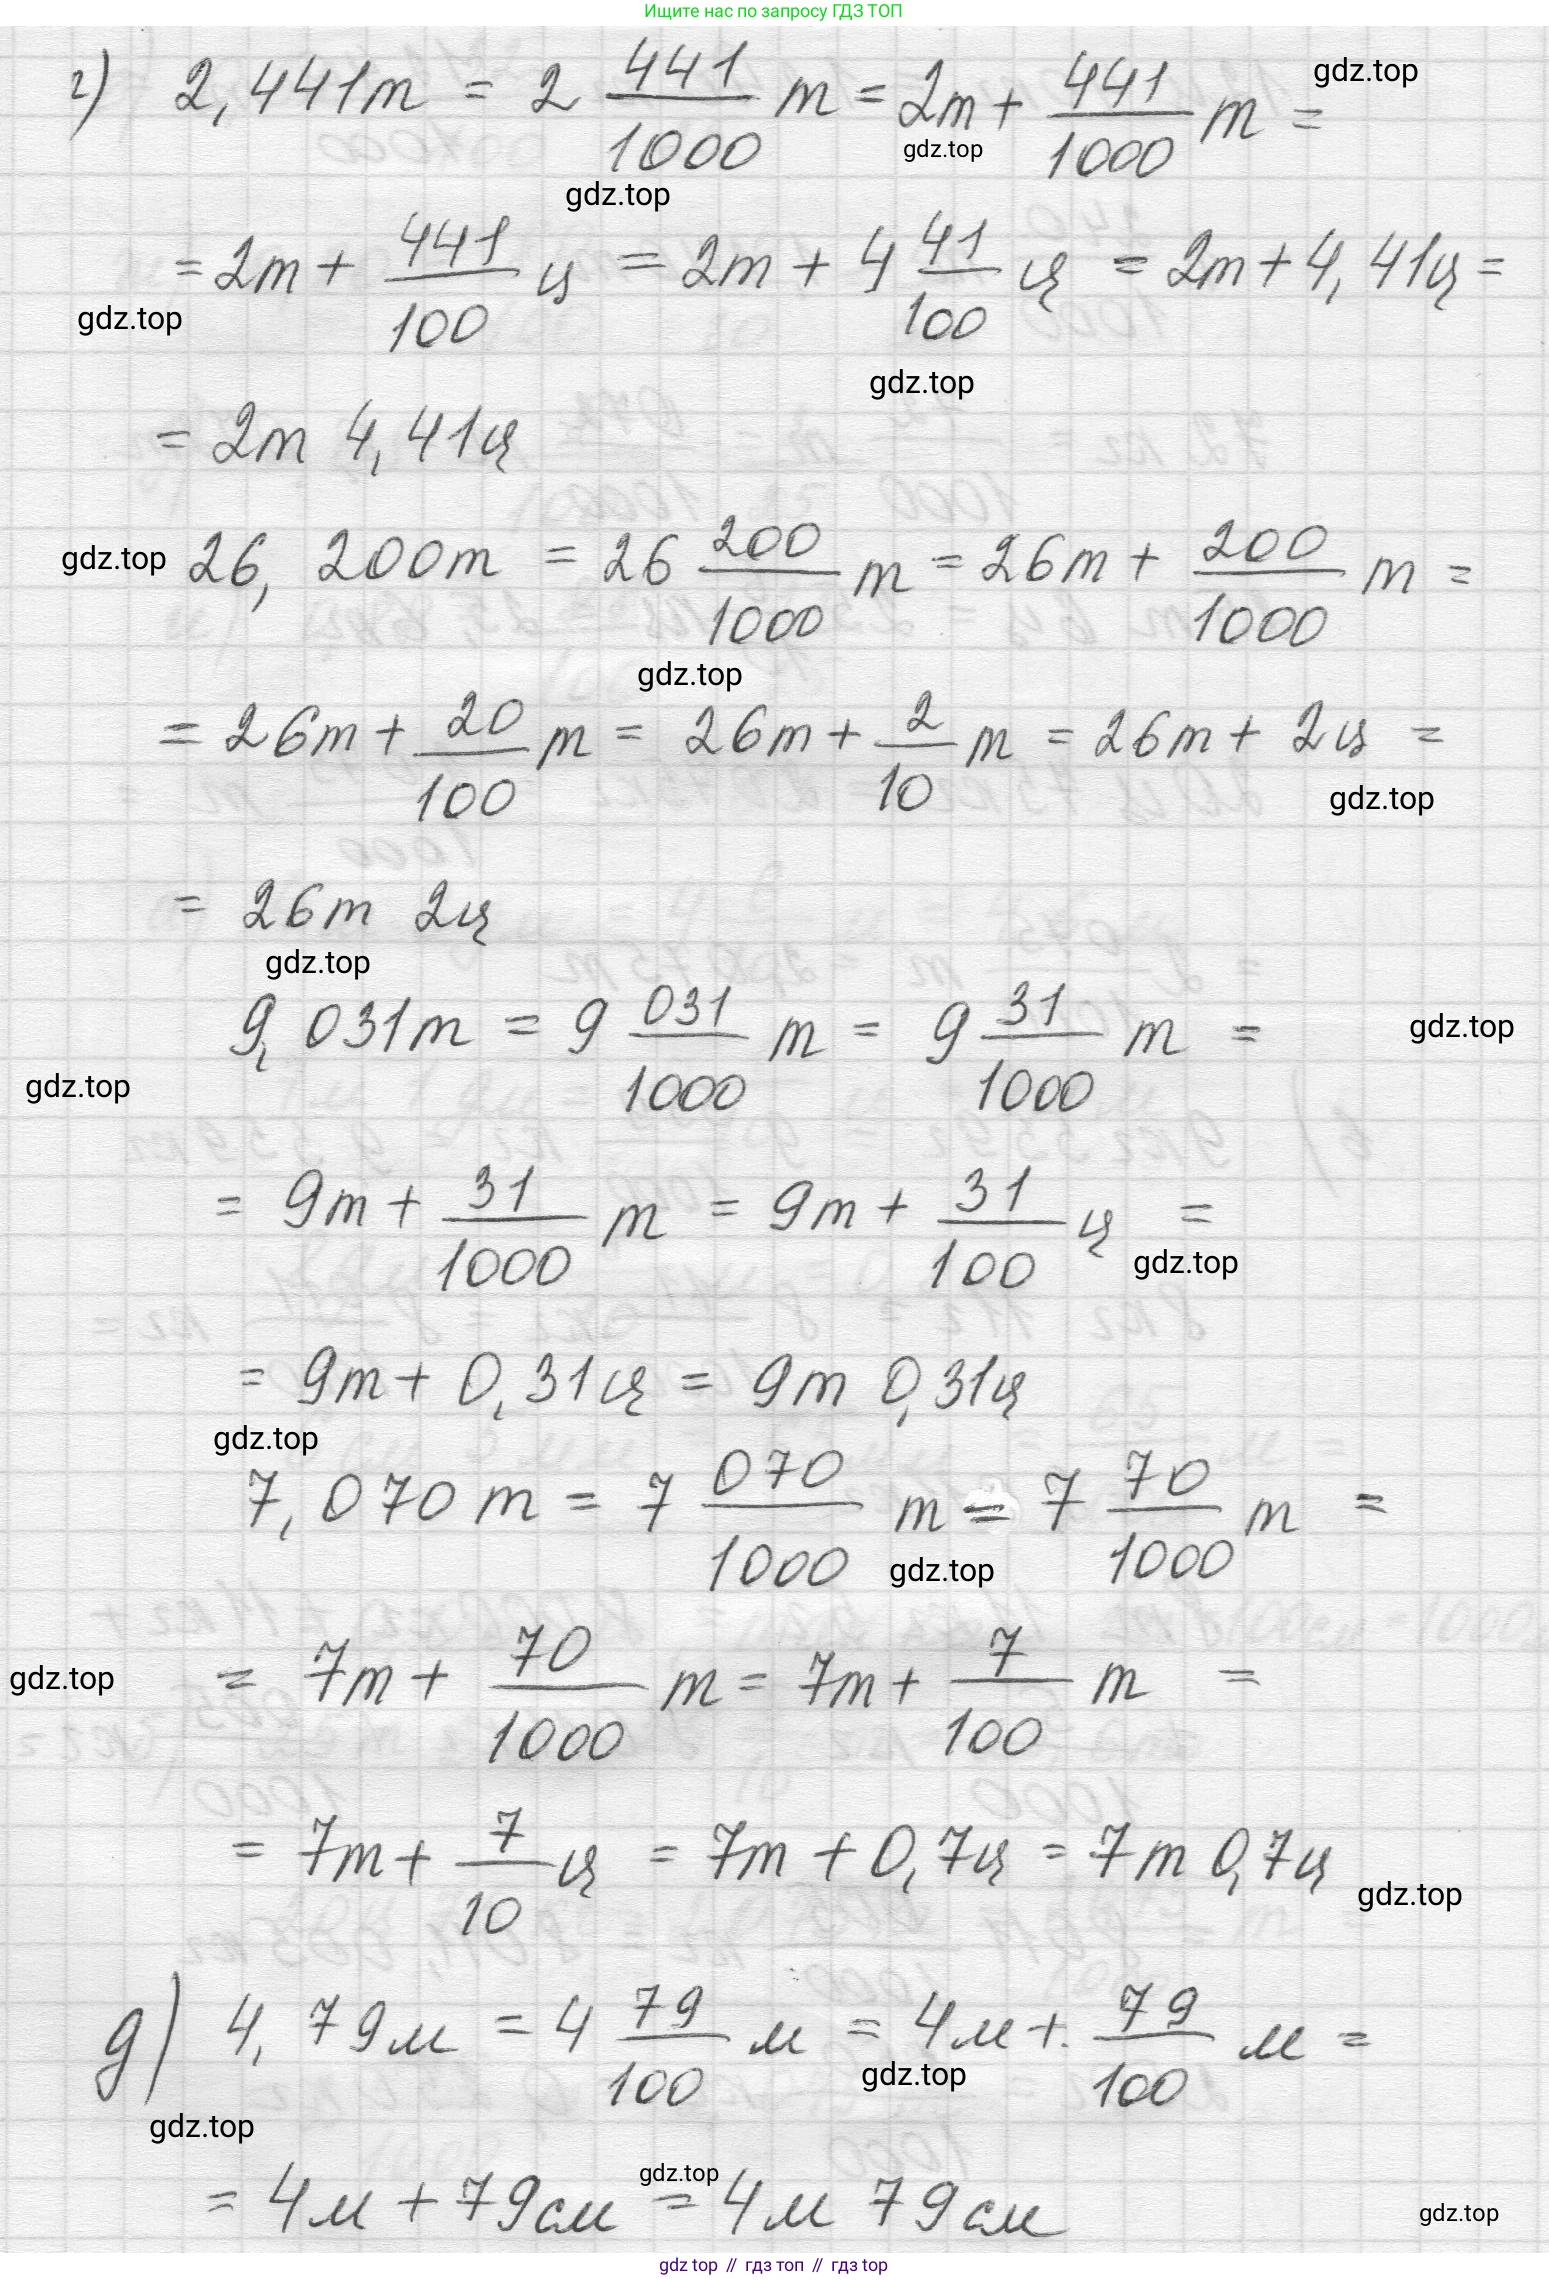 Ищите нас по запросу ГДЗ ТОП
г) 2,441т = 2 441/1000 т = 2т + 441/1000 т =
gdz.top
gdz.top
gdz.top
= 2т + 441/100 ц = 2т + 4 41/100 ц = 2т + 4,41ц =
gdz.top
gdz.top
= 2т 4,41ц
gdz.top
26,200т = 26 200/1000 т = 26т + 200/1000 т =
gdz.top
= 26т + 20/100 т = 26т + 2/10 т = 26т + 2ц =
gdz.top
= 26т 2ц
gdz.top
9,031т = 9 031/1000 т = 9 31/1000 т =
gdz.top
gdz.top
= 9т + 31/1000 т = 9т + 31/100 ц =
gdz.top
= 9т + 0,31ц = 9т 0,31ц
gdz.top
7,070т = 7 070/1000 т = 7 70/1000 т =
gdz.top
gdz.top
= 7т + 70/1000 т = 7т + 7/100 т =
= 7т + 7/10 ц = 7т + 0,7ц = 7т 0,7ц
gdz.top
д) 4,79м = 4 79/100 м = 4м + 79/100 м =
gdz.top
gdz.top
= 4м + 79см = 4м 79см
gdz.top
gdz.top
gdz top // гдз топ // гдз top